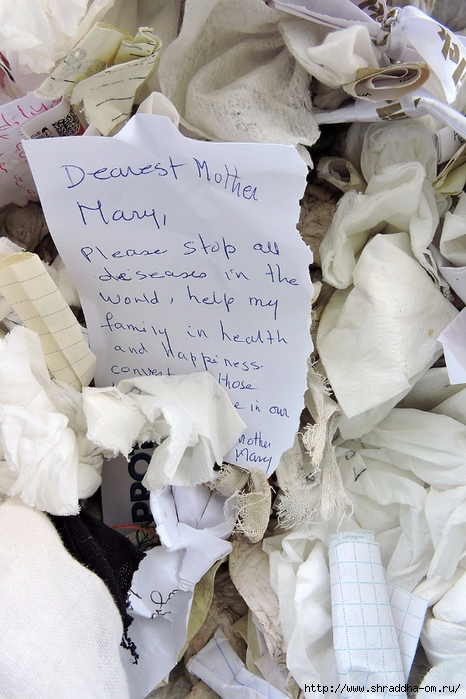 Dearest Mother
Mary,
Please stop all
deseases in the
world, help my
family in health
and Happiness.
those
in our
Mother
Mary
http://www.shraddha-om.ru/